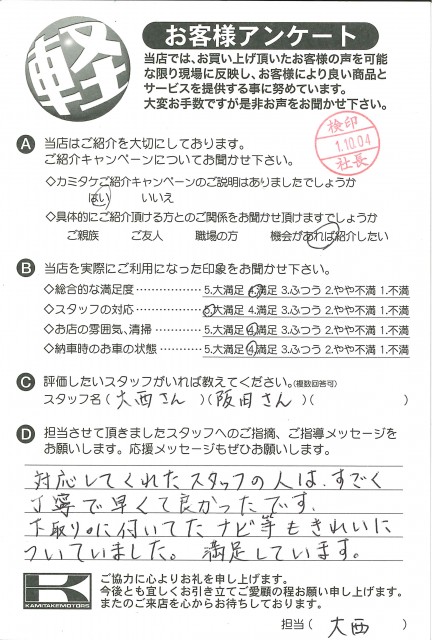 軽
お客様アンケート
当店では、お買い上げ頂いたお客様の声を可能
な限り現場に反映し、お客様により良い商品と
サービスを提供する事に努めています。
大変お手数ですが是非お声をお聞かせ下さい。
検印
1.10.04
社長
A 当店はご紹介を大切にしております。
ご紹介キャンペーンについてお聞かせ下さい。
◇カミタケご紹介キャンペーンのご説明はありましたでしょうか
はい いいえ
◇具体的にご紹介頂ける方とのご関係をお聞かせ頂けますでしょうか
ご親族 ご友人 職場の方 機会があれば紹介したい
B 当店を実際にご利用になった印象をお聞かせ下さい。
◇総合的な満足度 ……………… 5.大満足 4.満足 3.ふつう 2.やや不満 1.不満
◇スタッフの対応 ……………… 5.大満足 4.満足 3.ふつう 2.やや不満 1.不満
◇お店の雰囲気、清掃 ………… 5.大満足 4.満足 3.ふつう 2.やや不満 1.不満
◇納車時のお車の状態 ………… 5.大満足 4.満足 3.ふつう 2.やや不満 1.不満
C 評価したいスタッフがいれば教えてください。(複数回答可)
スタッフ名(大西さん)(阪田さん)( )
D 担当させて頂きましたスタッフへのご指摘、ご指導メッセージを
お願いします。応援メッセージもぜひお願いします。
対応してくれたスタッフの人は、すごく
丁寧で早くて良かったです。
下取りに付いてたナビ等もきれいに
ついていました。満足しています。
K
KAMITAKE MOTORS
ご協力に心よりお礼を申し上げます。
今後とも宜しくお引き立てご愛顧の程お願い申し上げます。
またのご来店を心からお待ちしております。
担当(大西)